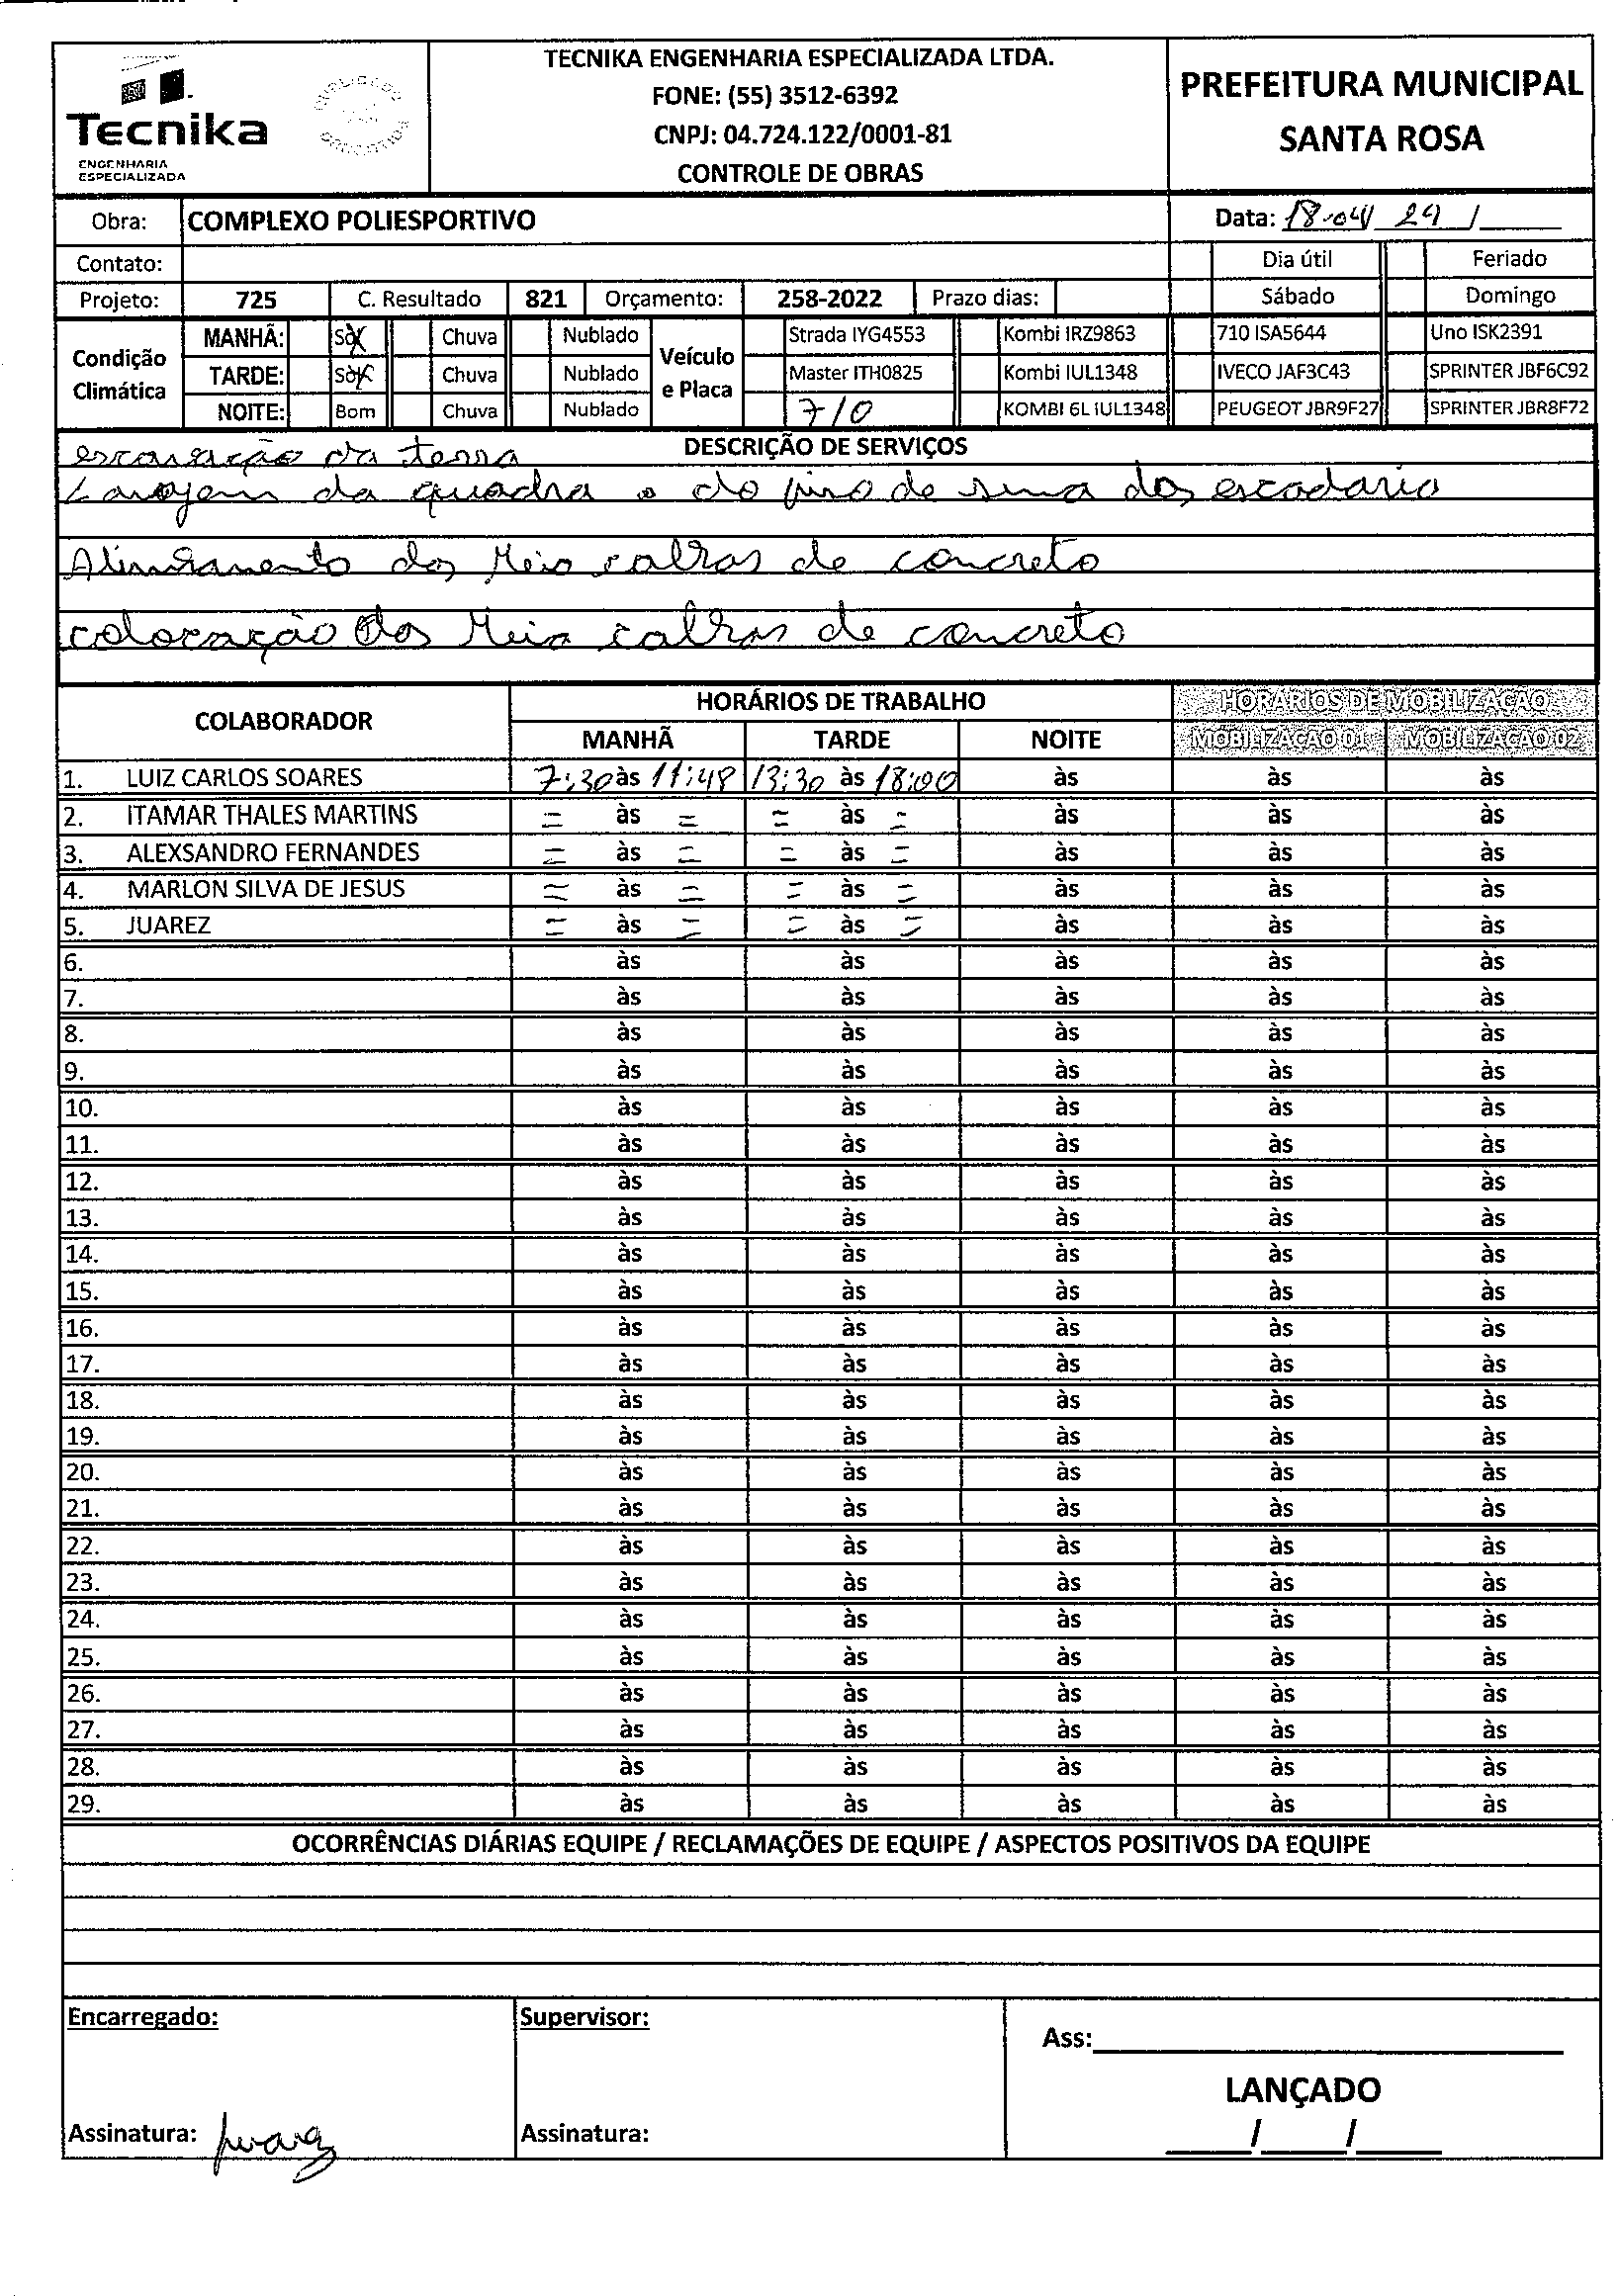 Tecnika
ENGENHARIA
ESPECIALIZADA
TECNIKA ENGENHARIA ESPECIALIZADA LTDA.
FONE: (55) 3512-6392
CNPJ: 04.724.122/0001-81
CONTROLE DE OBRAS
PREFEITURA MUNICIPAL
SANTA ROSA
Obra: COMPLEXO POLIESPORTIVO Data: 18-04/ 24 /
Contato: Dia útil Feriado
Projeto: 725 C. Resultado 821 Orçamento: 258-2022 Prazo dias: Sábado Domingo
Condição Climática
MANHÃ: Sol Chuva Nublado
TARDE: Sol Chuva Nublado
NOITE: Bom Chuva Nublado
Veículo e Placa
Strada IYG4553 Kombi IRZ9863 710 ISA5644 Uno ISK2391
Master ITH0825 Kombi IUL1348 IVECO JAF3C43 SPRINTER JBF6C92
710 KOMBI 6L IUL1348 PEUGEOT JBR9F27 SPRINTER JBR8F72
DESCRIÇÃO DE SERVIÇOS
escavação da terra
Lavajem da quadra e do piso de sima dos escadario
Alinhamento dos Meio calras de concreto
colocação dos Meio calras de concreto
COLABORADOR HORÁRIOS DE TRABALHO HORÁRIOS DE MOBILIZAÇÃO
MANHÃ TARDE NOITE MOBILIZAÇÃO 01 MOBILIZAÇÃO 02
1. LUIZ CARLOS SOARES 7:30 às 11:48 13:30 às 18:00 às às às
2. ITAMAR THALES MARTINS = às = = às = às às às
3. ALEXSANDRO FERNANDES = às = = às = às às às
4. MARLON SILVA DE JESUS = às = = às = às às às
5. JUAREZ = às = = às = às às às
6. às às às às às
7. às às às às às
8. às às às às às
9. às às às às às
10. às às às às às
11. às às às às às
12. às às às às às
13. às às às às às
14. às às às às às
15. às às às às às
16. às às às às às
17. às às às às às
18. às às às às às
19. às às às às às
20. às às às às às
21. às às às às às
22. às às às às às
23. às às às às às
24. às às às às às
25. às às às às às
26. às às às às às
27. às às às às às
28. às às às às às
29. às às às às às
OCORRÊNCIAS DIÁRIAS EQUIPE / RECLAMAÇÕES DE EQUIPE / ASPECTOS POSITIVOS DA EQUIPE
Encarregado: Supervisor:
Ass:
LANÇADO
Assinatura: juarez Assinatura: / /